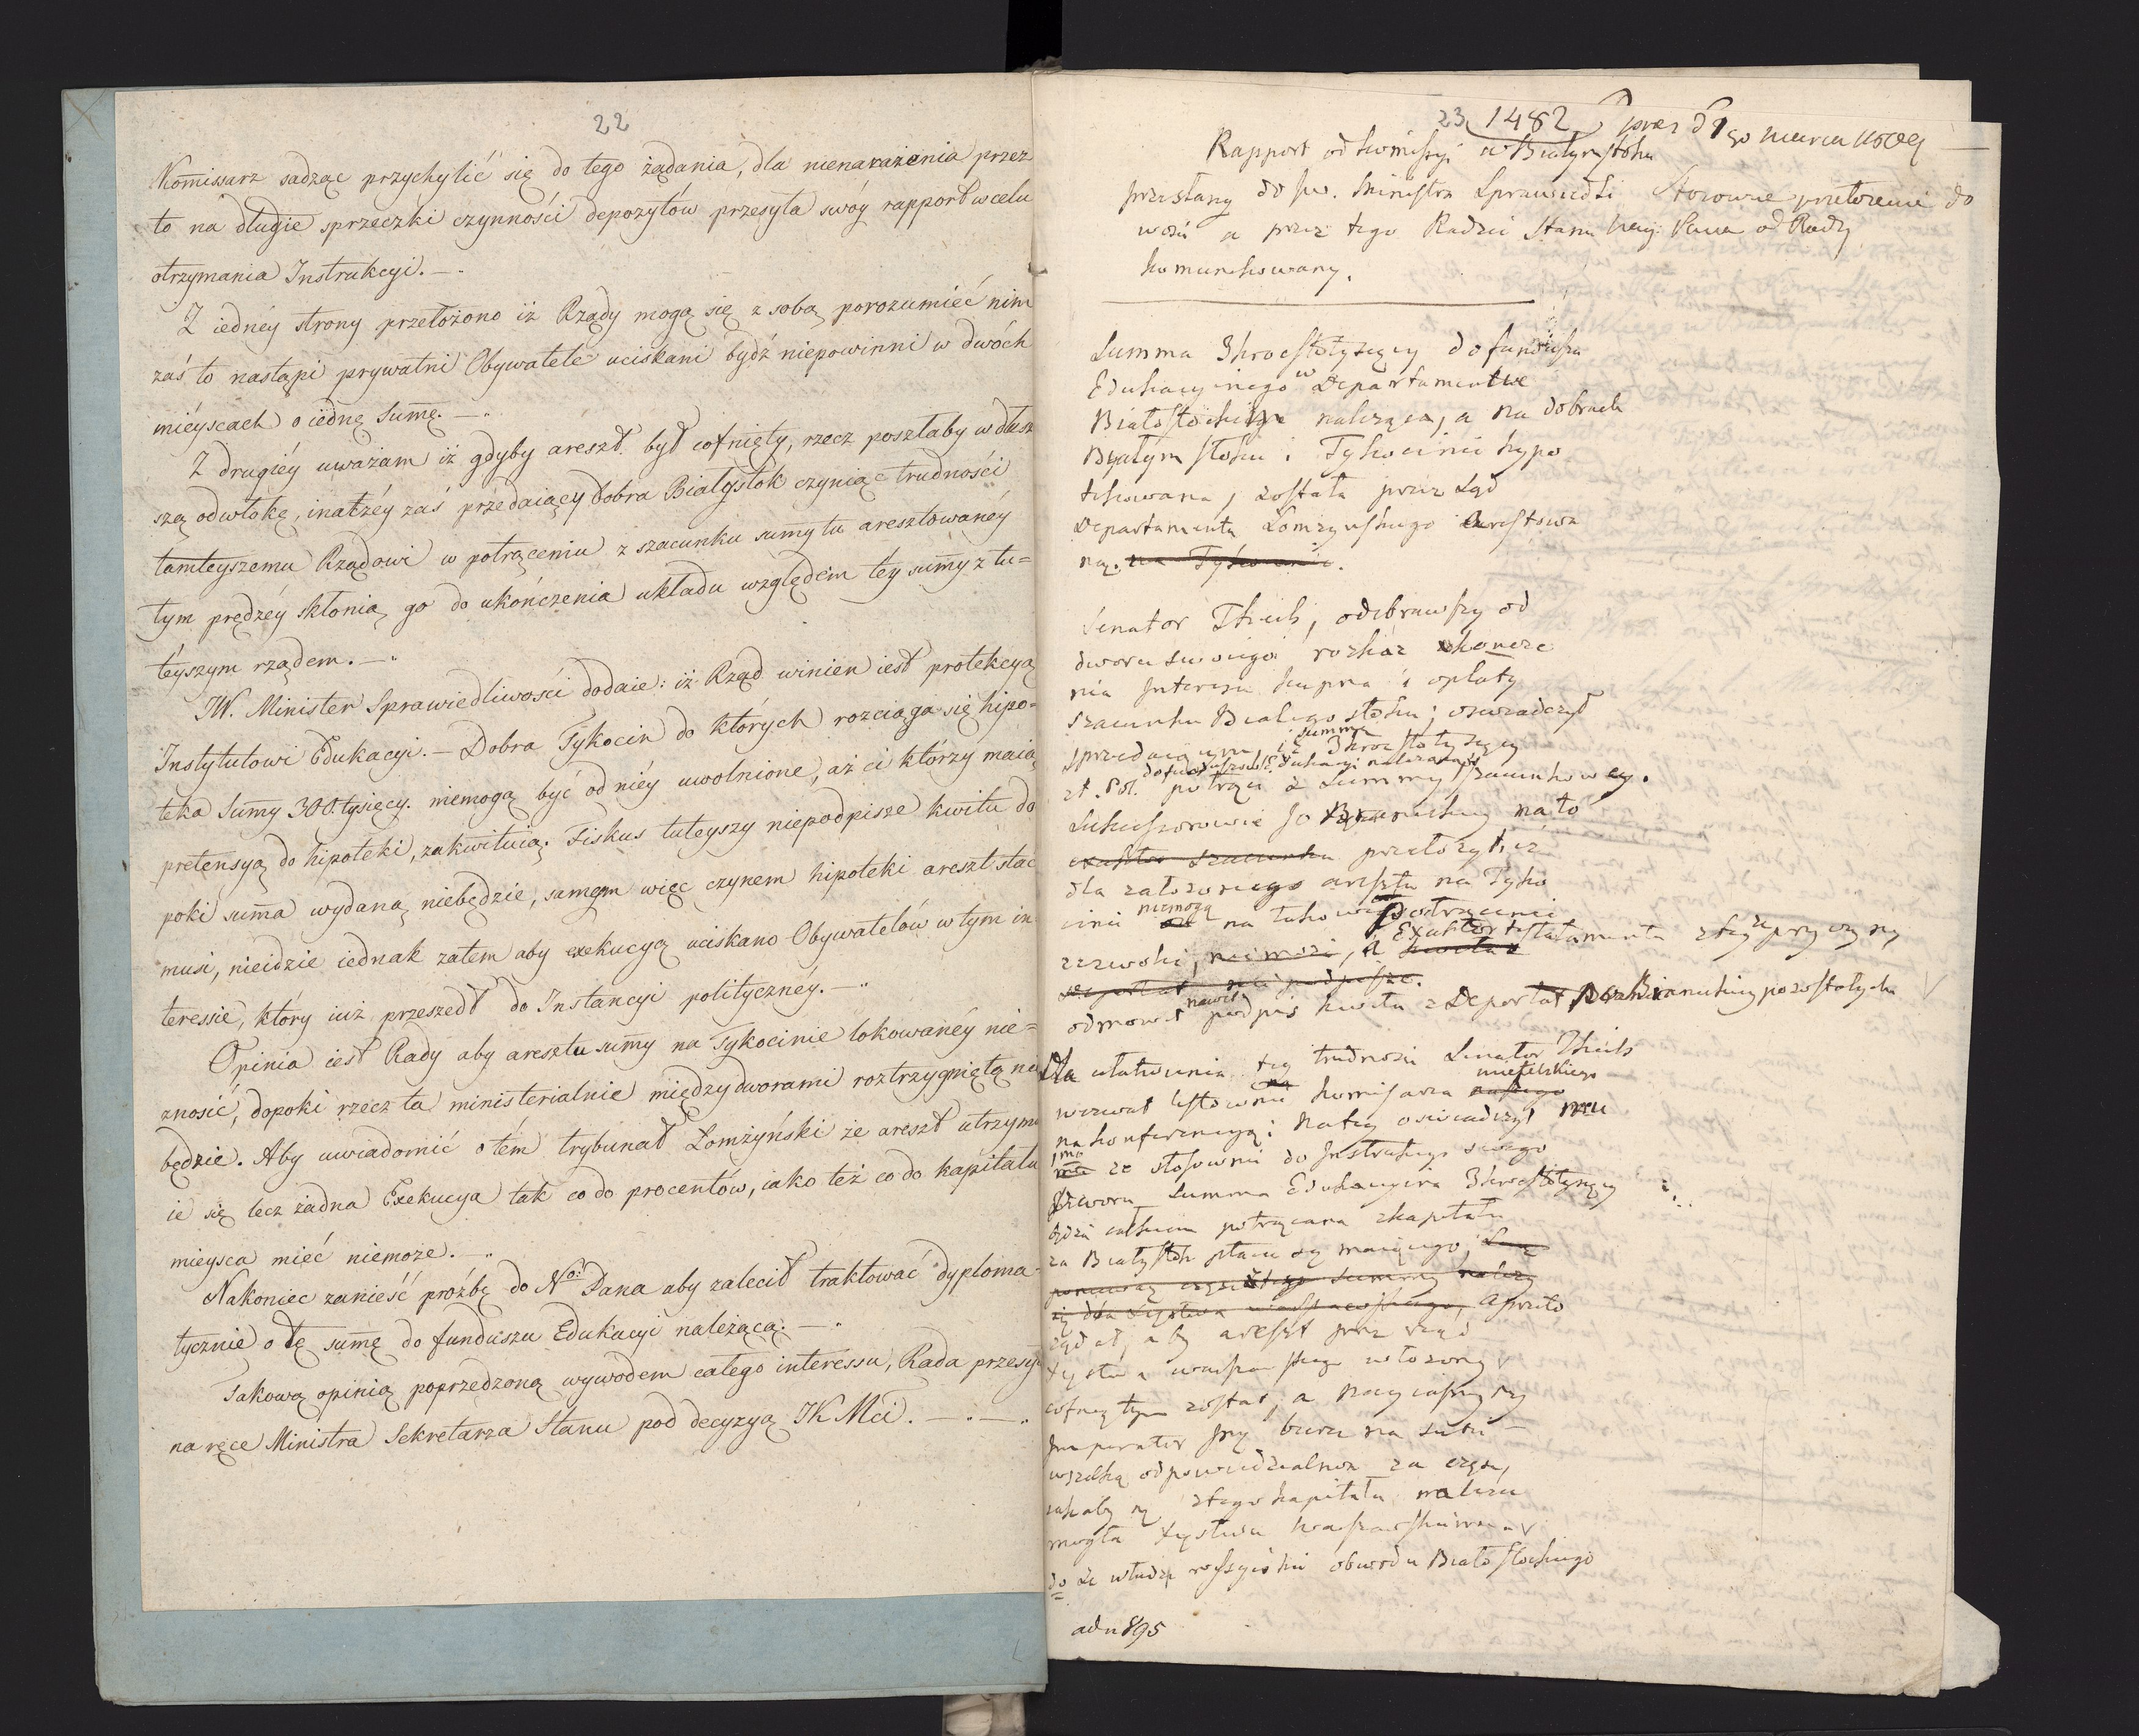 22
Kom̄issarz sadząc przychylić się do tego żądania, dla nienarażenia przez
to na długie sprzeczki czynności depozytów przesyła swóy rapport w celu
otrzymania Instrukcyi. —
Z iednéy strony przełożono iż Rządy mogą się z sobą porozumieć nim
zaś to nastąpi prywatni Obywatele uciskani bydź niepowinni w dwóch
mieyscach o iednę Sum̄ę. —
Z drugiéy uważam iż gdyby areszt był cofnięty, rzecz poszłaby w dłuż
szą odwłokę, inaczéy zaś przedaiący Dobra Białystok czyniąc trudności
tamteyszemu Rządowi w potrąceniu z szacunku sum̄y tu aresztowanéy
tym prędzéy skłonią go do ukończenia układu względem tey sum̄y z tu=
téyszym rządem. —
JW. Minister Sprawiedliwości dodaie: iż Rząd winien iest protekcyą
Instytutowi Edukacyi. — Dobra Tykocin do których rozciąga się hipo=
teka Sum̄y 300. tysięcy. niemogą być od niéy uwolnione, aż ci którzy maią
pretensyą do hipoteki, zakwituią. Fiskus tuteyszy niepodpisze kwitu do
poki sum̄a wydaną niebędzie, samem więc czynem hipoteki areszt stać
musi, nieidzie iednak zatem aby exekucyą uciskano Obywatelów w tym in
teressie, który iuż przeszedł do Instancyi polityczney. —
Opinia iest Rady aby aresztu sum̄y na Tykocinie lokowanéy nie=
znosić, dopoki rzecz ta ministerialnie między dworami roztrzygniętą nie
będzie. Aby uwiadomić o tém trybunał Łomżyński że areszt utrzymu
ie się lecz żadna Exekucya tak co do procentów, iako też co do kapitału
mieysca mieć niemoże. —
Nakoniec zanieść prożbę do N° Pana aby zalecił traktować dyploma=
tycznie o tę sum̄ę do funduszu Edukacyi należącą. —
Takową opinią poprzedzoną wywodem całego interessu, Rada przesyła
na ręce Ministra Sekretarza Stanu pod decyzyą JK Mci. —
23 1482
Rapport od Komisyi w Białymstoku
przesłany do Jw. Ministra Sprawiedli
wości a przez tego Radzie Stanu
komunikowany.
Stosowne przełożenie do
Nay: Pana od Rady
Summa 3kroćstotysięcy do funduszu
Edukacyinego w Departamencie
Białostockim należąca, a na dobrach
Białymstoku i Tykocinie hypo
tekowana, została przez Sąd
Departamentu Łomżyńskiego aresztowa
ną. na Tykocinie.
Senator Theils, odebrawszy od
dworu swoiego rozkaz skończe
nia Interesu kupna i opłaty
szacunku Białegostoku, oświadczył
sprzedaiącym, iż summę 3kroćstotysięcy
zł. Pol. do funduszów Edukacyi należącą potrąci z Summy szacunkowey.
Sukcessorowie po Branickiey na to
exaktor szacunku przełożyli, iż
dla założonego aresztu na Tyko
cinie niemogą na takowe potrącenie
zezwolić, niemoże, a Exaktor testamentu z tey że przyczyny
odmowił nawet podpis kwitu z Deportat po Branickiey pozostałych
Dla ułatwienia tey trudności Senator Theils
wezwał listownie Komisarza
na konferencyą; na tey oświadczył mu
1mo że stosownie do Instrukcyi swego
Dworu Summa Edukacyina 3kroćstotysięcy
będzie całkiem potrącana z kapitału
za Białystok płacić się maiącego; Lecz
ponieważ część tego summy należy
się do Xięstwa Warszawskiego, a przeto
żądał, aby areszt przez rząd
Xięstwa Warszawskiego założony
cofniętym został, a Nayiaśnieyszy
Imperator Jmć bierze na siebie
wszelką odpowiedzialność za część,
iakaby się z tego kapitału należeć
mogła Xięstwu Warszawskiemu
2do że władze rossyiskie obwodu Białostockiego
ad n 895